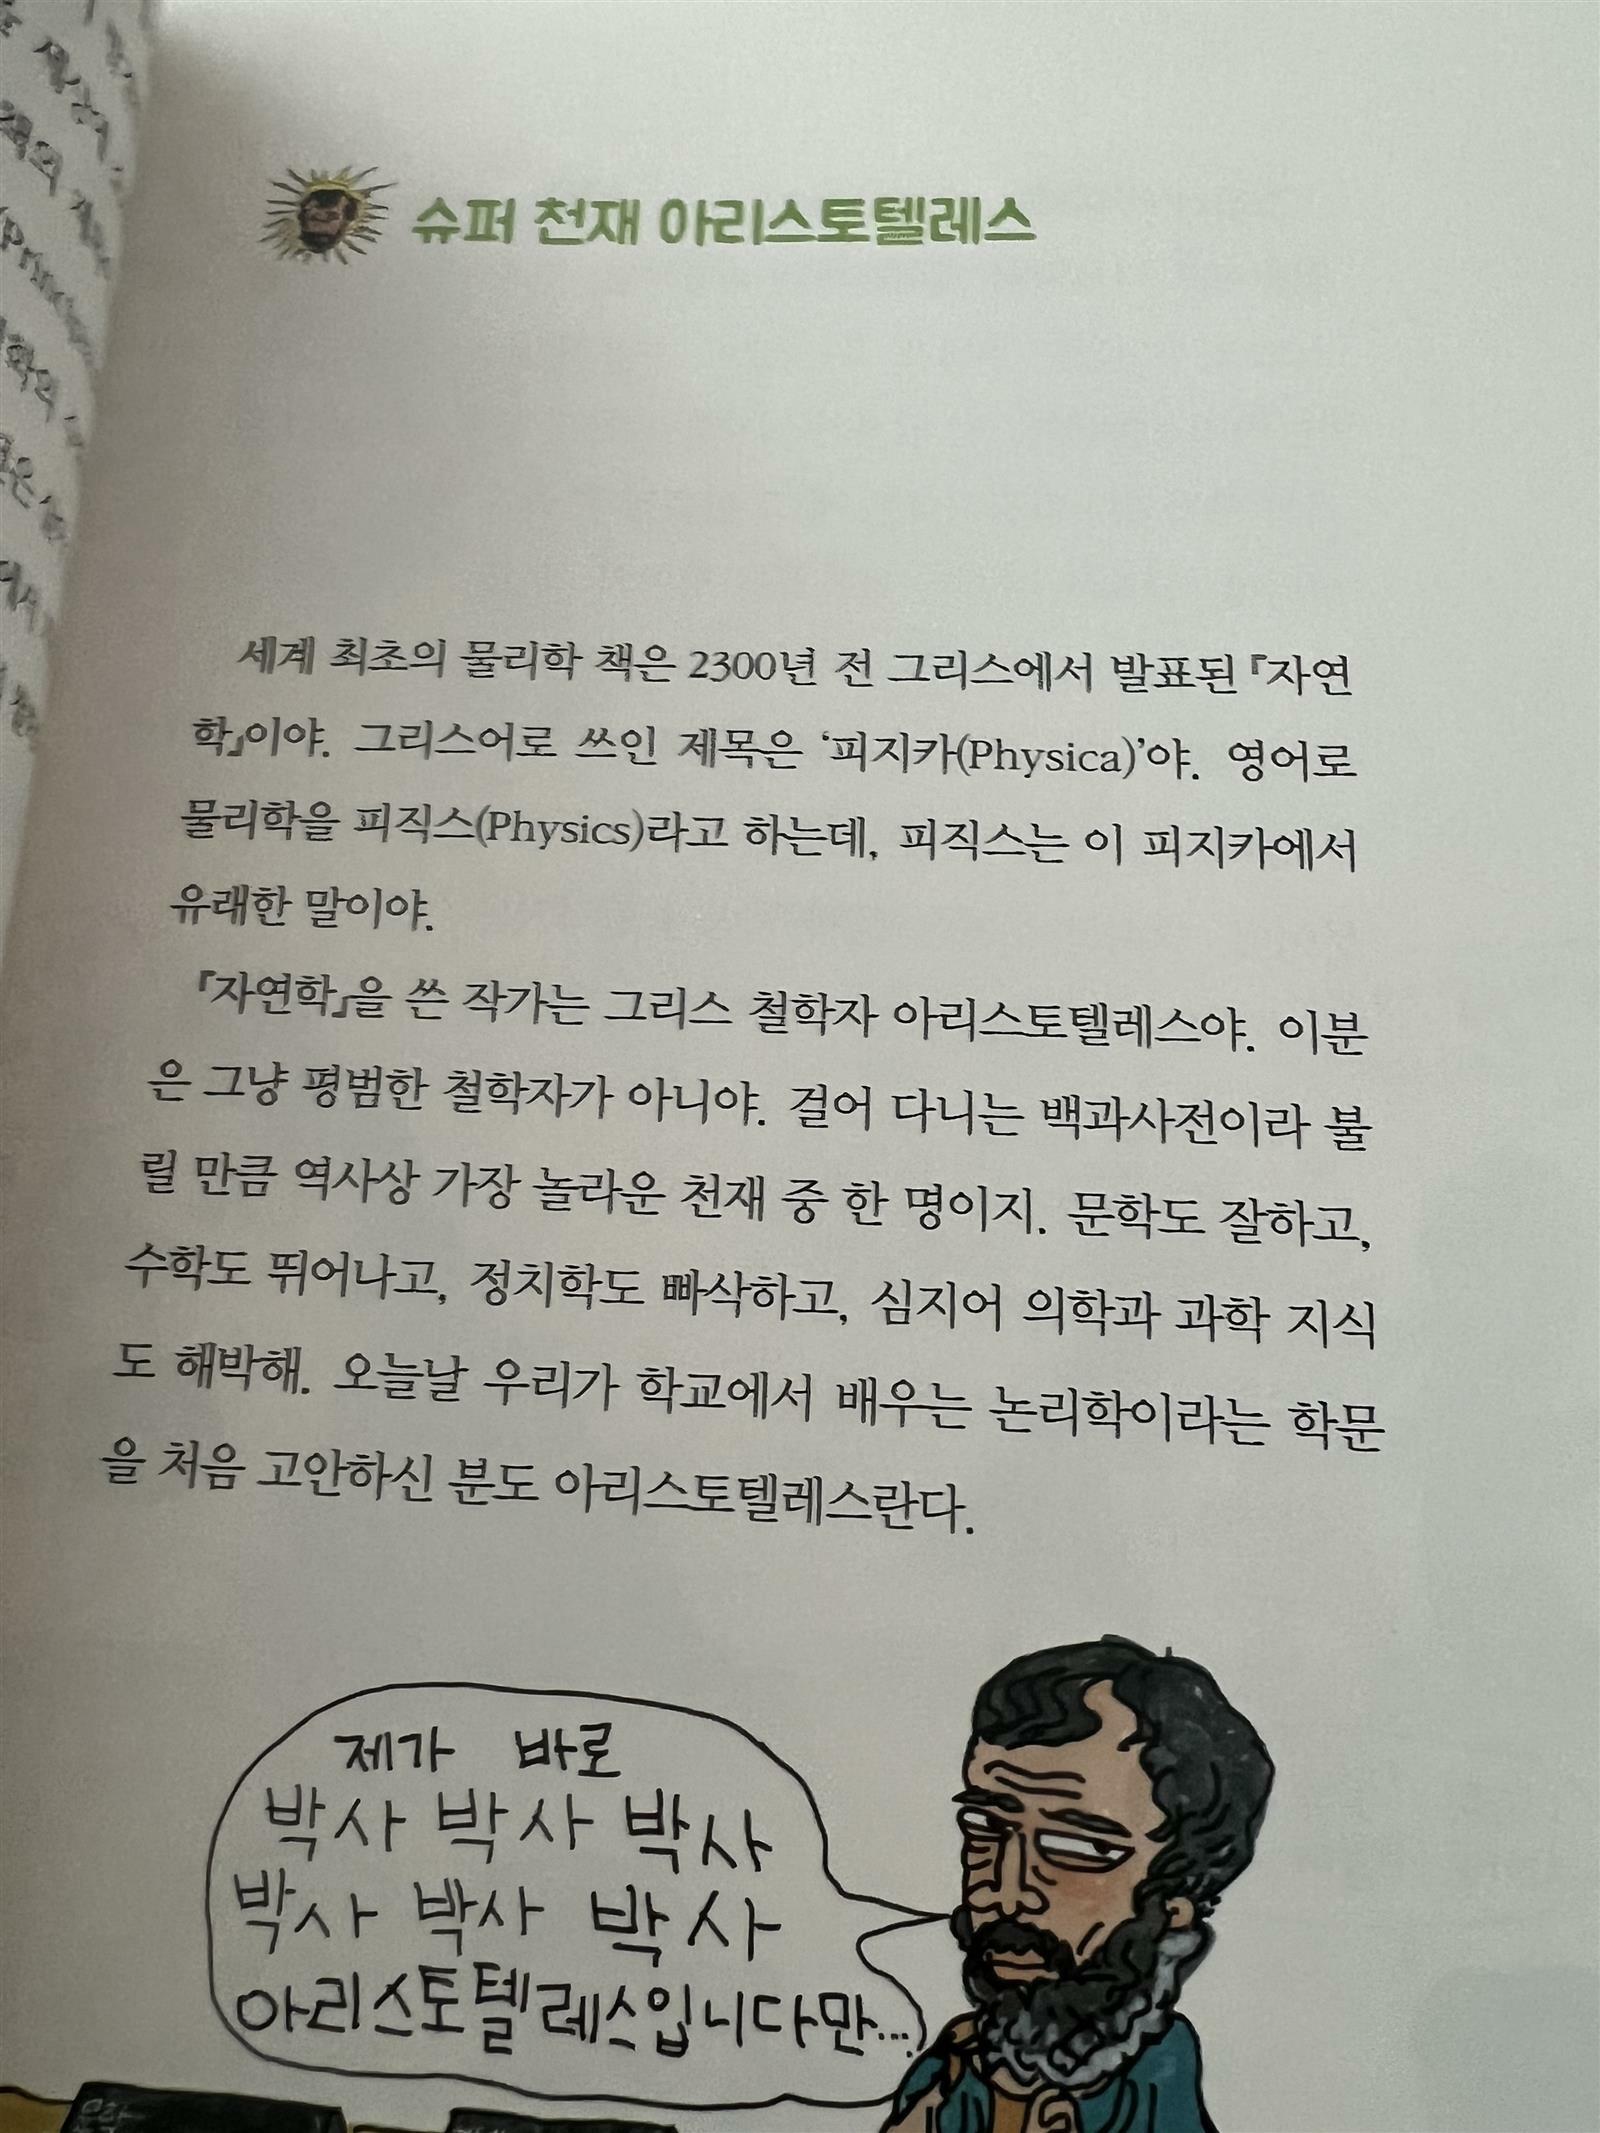 슈퍼 천재 아리스토텔레스
세계 최초의 물리학 책은 2300년 전 그리스에서 발표된 『자연
학』이야. 그리스어로 쓰인 제목은 ‘피지카(Physica)’야. 영어로
물리학을 피직스(Physics)라고 하는데, 피직스는 이 피지카에서
유래한 말이야.
『자연학』을 쓴 작가는 그리스 철학자 아리스토텔레스야. 이분
은 그냥 평범한 철학자가 아니야. 걸어 다니는 백과사전이라 불
릴 만큼 역사상 가장 놀라운 천재 중 한 명이지. 문학도 잘하고,
수학도 뛰어나고, 정치학도 빠삭하고, 심지어 의학과 과학 지식
도 해박해. 오늘날 우리가 학교에서 배우는 논리학이라는 학문
을 처음 고안하신 분도 아리스토텔레스란다.
제가 바로
박사 박사 박사
박사 박사 박사
아리스토텔레스입니다만...